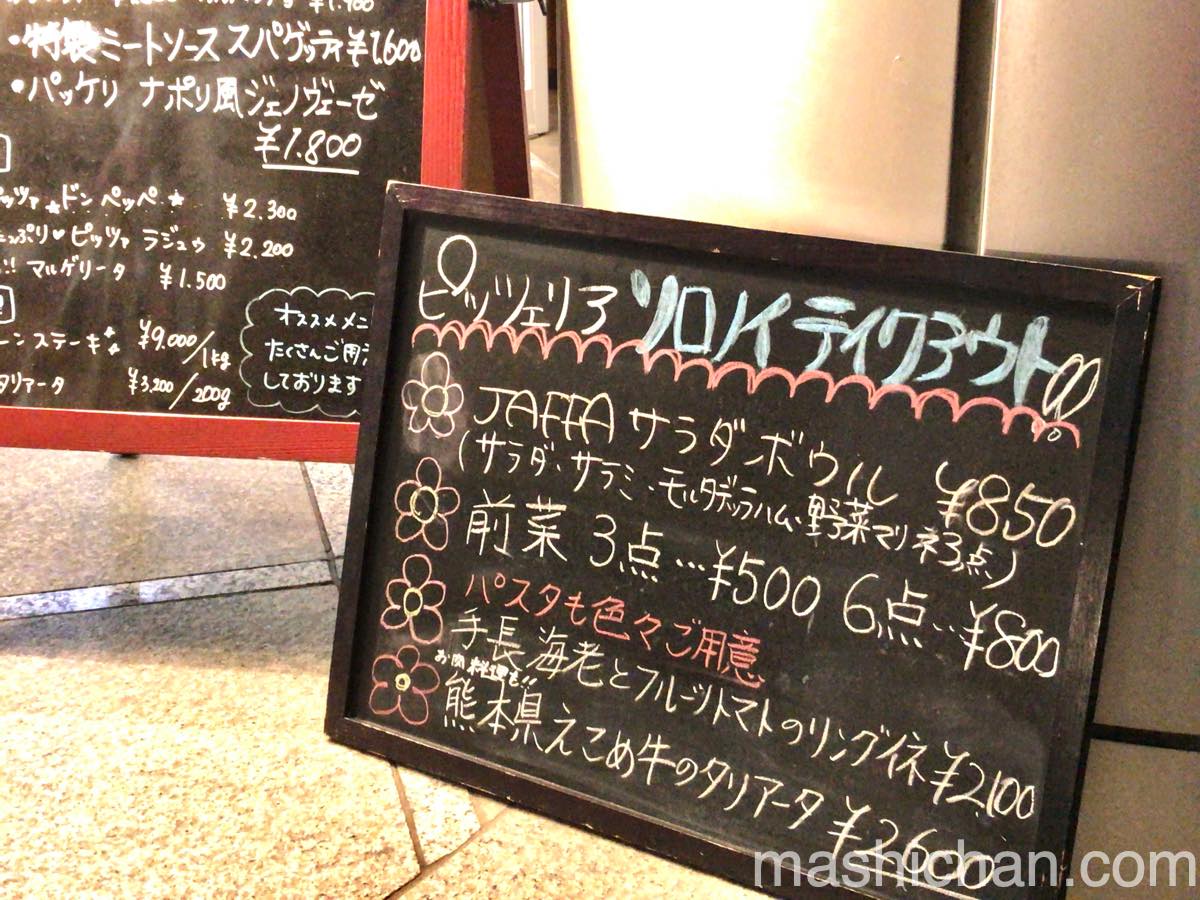 ¥1,900
・特製ミートソーススパゲッティ¥1,600
・パッケリ ナポリ風ジェノヴェーゼ
¥1,800
ッツァ☆ドンペッペ☆ ¥2.300
ぷり♥ピッツァ ラジュゥ ¥2.200
!! マルゲリータ ¥1.500
ーンステーキ☆ ¥9,000/1kg
タリアータ ¥3,200/200g
オススメメニ
たくさんご用
しております
ピッツェリア ソロノイ テイクアウト!!
JAFFA サラダボウル ¥850
(サラダ・サラミ・モルタデッラハム・野菜マリネ3点)
前菜 3点…¥500 6点…¥800
パスタも色々ご用意
手長海老とフルーツトマトのリングイネ¥2,100
お肉料理も!!
熊本県えこめ牛のタリアータ ¥2600
mashichan.com